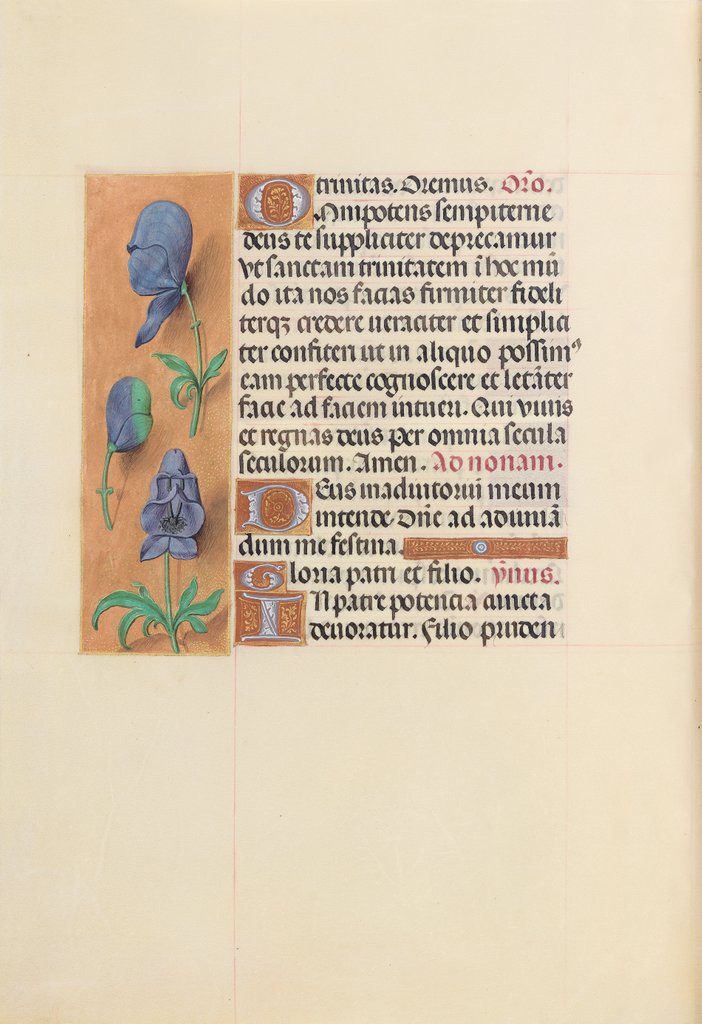 trinitas. Oremus. Or̄o.
Omnipotens sempiterne
deus te suppliciter deprecamur
vt sanctam trinitatem ī hoc mū
do ita nos facias firmiter fideli
terqȝ credere ueraciter et simplici
ter confiteri ut in aliquo possimꝰ
eam perfecte cognoscere et letāter
facie ad faciem intueri. Qui viuis
et regnas deus per omnia secula
seculorum. Amen. Ad nonam.
Deus in adiutoriū meum
intende Dn̄e ad adiuuā
dum me festina.
Gloria patri et filio. ỹmus.
In patre potencia cuncta
deuoratur. Filio pruden